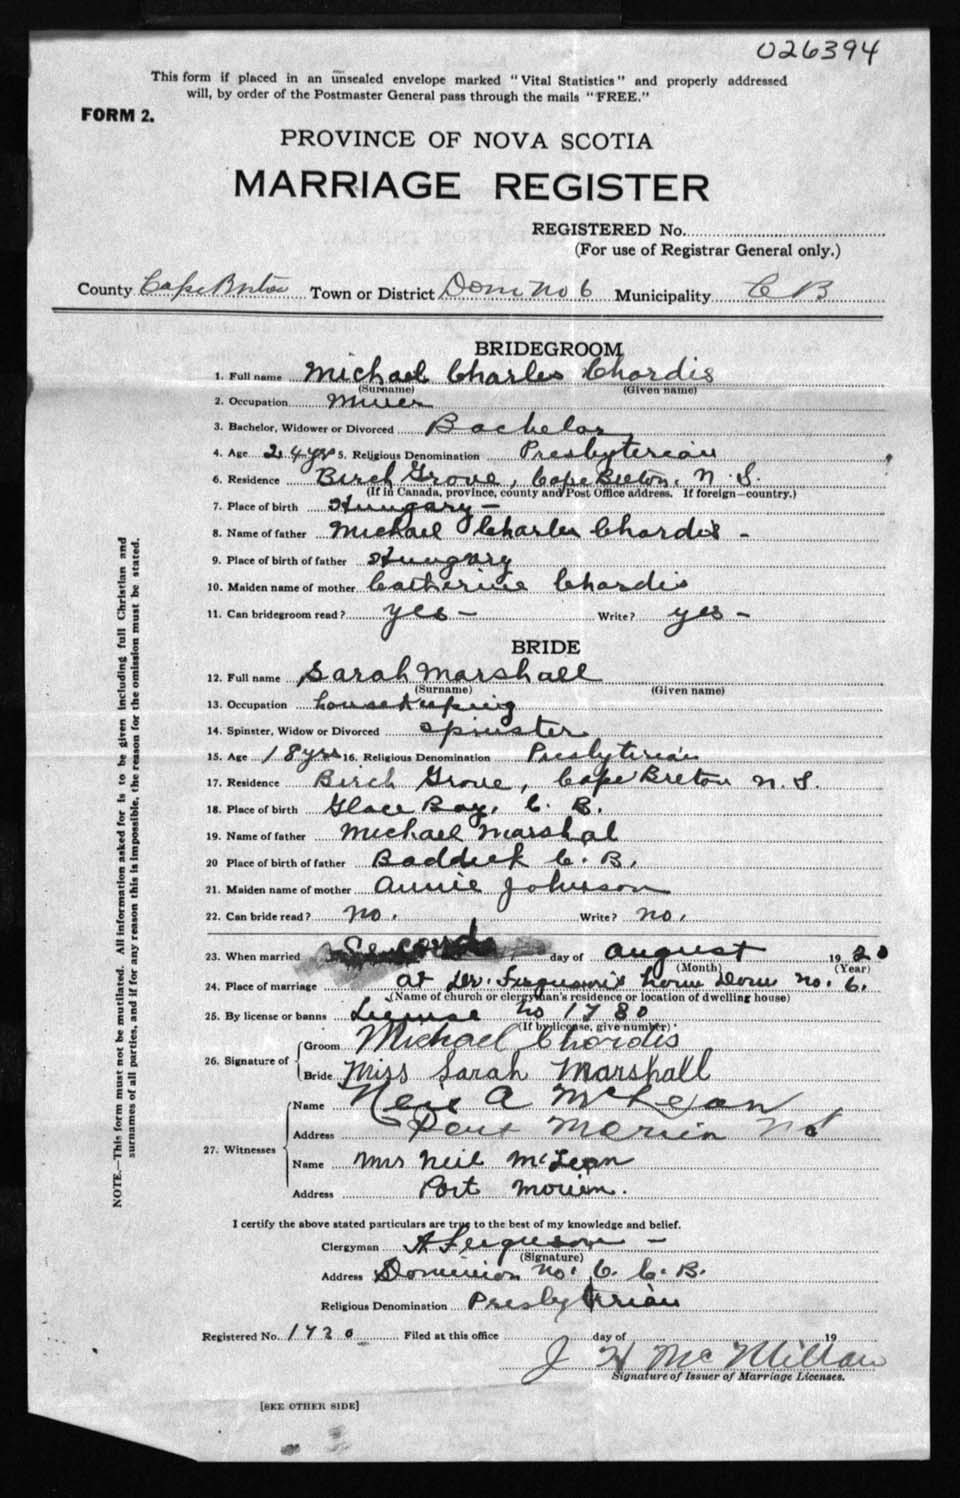 026394
This form if placed in an unsealed envelope marked "Vital Statistics" and properly addressed
will, by order of the Postmaster General pass through the mails "FREE."
FORM 2.
PROVINCE OF NOVA SCOTIA
MARRIAGE REGISTER
REGISTERED No.
(For use of Registrar General only.)
County Cape Breton Town or District Dom No 6 Municipality C B
BRIDEGROOM
1. Full name Michael Charles Chordis
(Surname) (Given name)
2. Occupation Miner
3. Bachelor, Widower or Divorced Bachelor
4. Age 24 yrs 5. Religious Denomination Presbyterian
6. Residence Birch Grove, Cape Breton, N. S.
(If in Canada, province, county and Post Office address. If foreign—country.)
7. Place of birth Hungary -
8. Name of father Michael Charles Chordis -
9. Place of birth of father Hungary
10. Maiden name of mother Catherine Chordis
11. Can bridegroom read? yes - Write? yes -
BRIDE
12. Full name Sarah Marshall
(Surname) (Given name)
13. Occupation housekeeping
14. Spinster, Widow or Divorced spinster
15. Age 18 yrs 16. Religious Denomination Presbyterian
17. Residence Birch Grove, Cape Breton N. S.
18. Place of birth Glace Bay, C. B.
19. Name of father Michael Marshal
20 Place of birth of father Baddeck C. B.
21. Maiden name of mother Annie Johnson
22. Can bride read? No. Write? No.
23. When married Second day of August 1920
(Month) (Year)
24. Place of marriage at Dr. Ferguson's home Dom No. 6.
(Name of church or clergyman's residence or location of dwelling house)
25. By license or banns License No 1780
(If by license, give number)
26. Signature of Groom Michael Chordis
Bride Miss Sarah Marshall
27. Witnesses Name A McLean
Address Port Morien NS
Name Mrs Neil McLean
Address Port Morien.
I certify the above stated particulars are true to the best of my knowledge and belief.
Clergyman A Ferguson -
(Signature)
Address Dominion No. 6 C. B.
Religious Denomination Presbyterian
Registered No. 1720 Filed at this office day of 19
J H McMillan
Signature of Issuer of Marriage Licenses.
[SEE OTHER SIDE]
NOTE.—This form must not be mutilated. All information asked for is to be given including full Christian and
surnames of all parties, and if for any reason this is impossible, the reason for the omission must be stated.